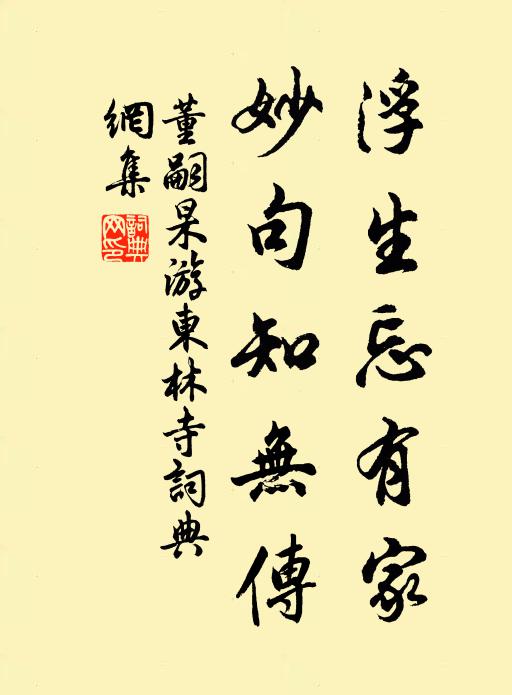 浮生忘有家
妙句知無傳
董嗣杲游東林寺詞典
網集
詞典
網印